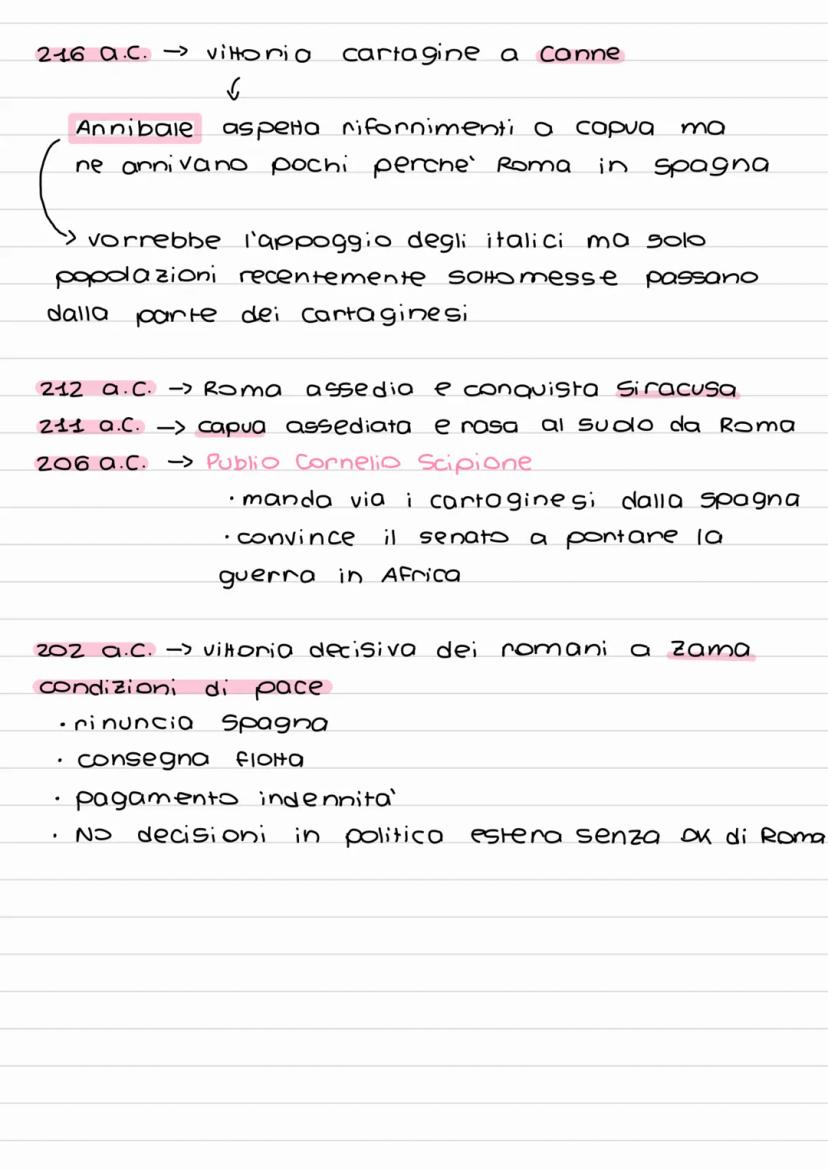 216 a.C. → vittoria cartagine a Canne
↓
Annibale aspetta rifornimenti a capua ma
ne arrivano pochi perche' Roma in spagna
→ vorrebbe l'appoggio degli italici ma solo
popolazioni recentemente sottomesse passano
dalla parte dei cartaginesi
212 a.C. → Roma assedia e conquista Siracusa
211 a.C. → capua assediata e rasa al suolo da Roma
206 a.C. → Publio Cornelio Scipione
· manda via i cartaginesi dalla spagna
· convince il senato a portare la
guerra in Africa
202 a.C. → vittoria decisiva dei romani a Zama
condizioni di pace
· rinuncia Spagna
· consegna flotta
· pagamento indennita'
· No decisioni in politica estera senza OK di Roma